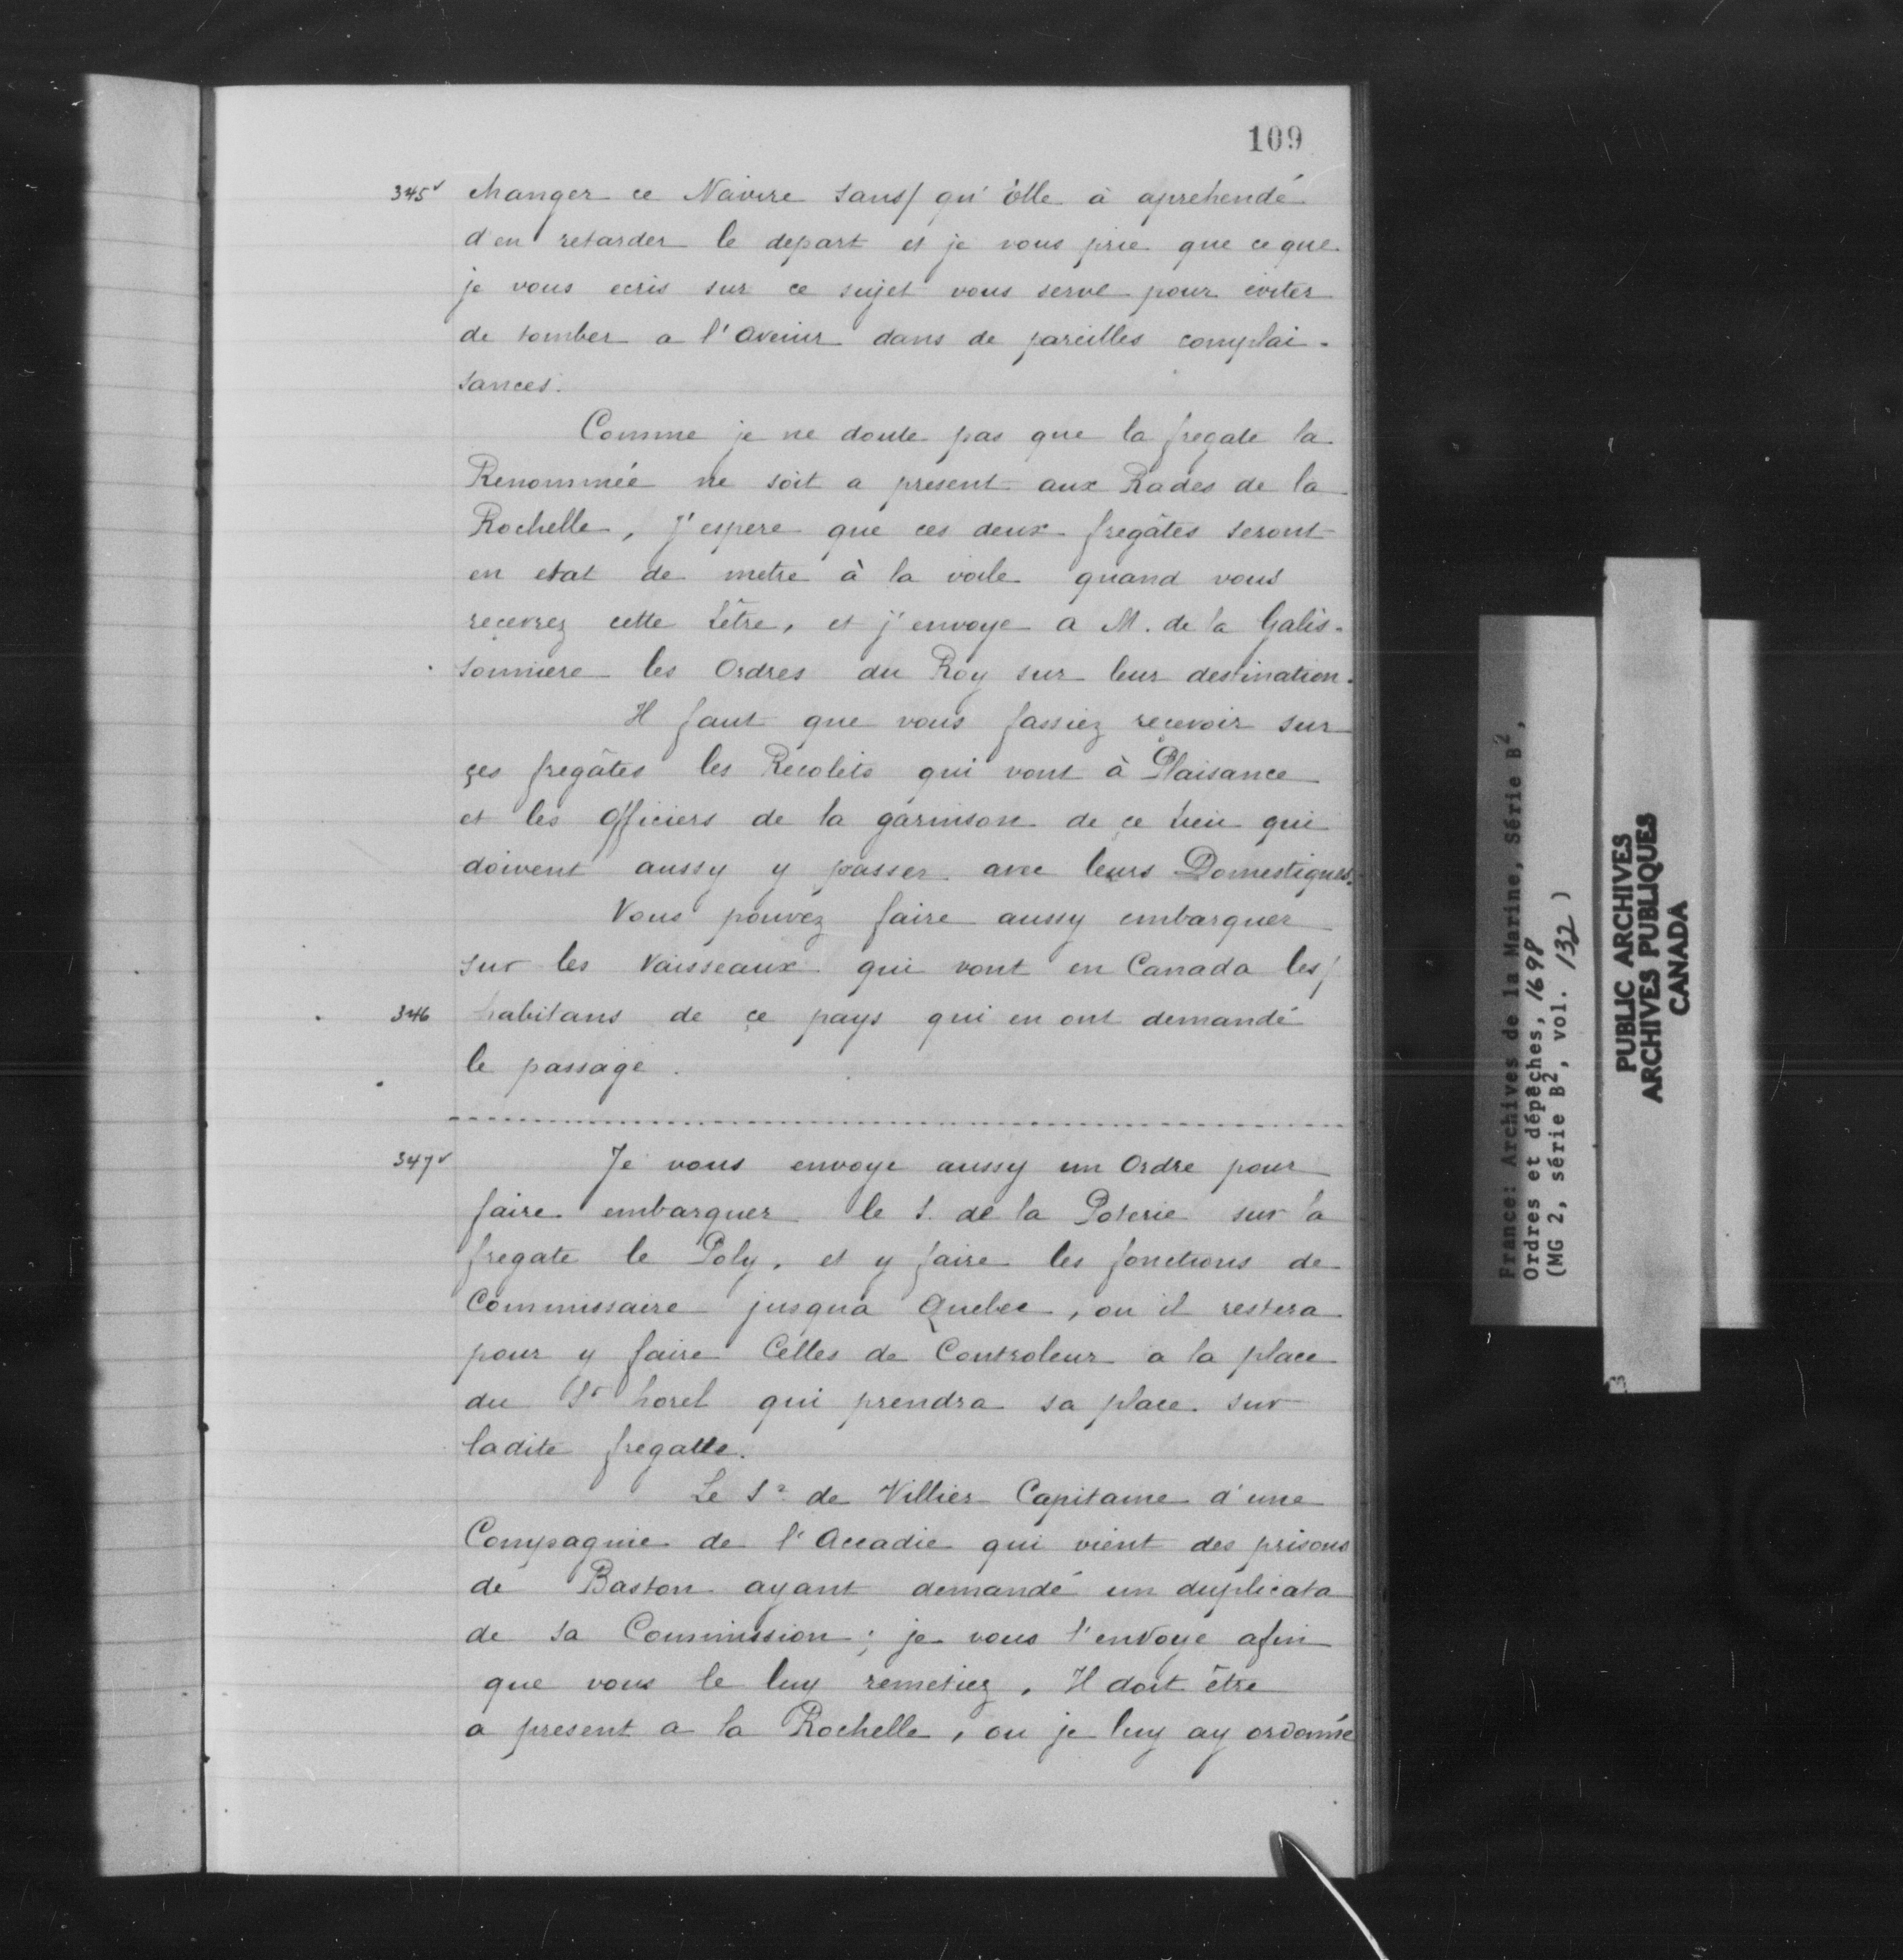 109
345v changer ce Navire sans/ qu'elle à aprehendé
d'en retarder le depart et je vous prie que ce que
je vous ecris sur ce sujet vous serve pour eviter
de tomber a l'avenir dans de pareilles complai-
sances.
Comme je ne doute pas que la fregate la
Renommée ne soit a present aux Rades de la
Rochelle, j'espere que ces deux fregâtes seront
en etat de metre à la voile quand vous
reçevrez cette letre, et j'envoye a M. de la Galis-
sonniere les Ordres du Roy sur leur destination.
Il faut que vous fassiez reçevoir sur
çes fregâtes les Recolets qui vont à Plaisance
et les officiers de la garnison de çe lieu qui
doivent aussy y passer avec leurs Domestiques.
Vous pouvez faire aussy embarquer
sur les Vaisseaux qui vont en Canada les/
346 habitans de çe pays qui en ont demandé
le passage.
347v Je vous envoye aussy un Ordre pour
faire embarquer le S. de la Poterie sur la
fregate le Poly, et y faire les fonctions de
Commissaire jusqua Quebec, ou il restera
pour y faire Celles de Controleur a la place
du Sr horel qui prendra sa place sur
ladite fregatte.
Le Sr de Villier Capitaine d'une
Compagnie de l'Accadie qui vient des prisons
de Baston ayant demandé un duplicata
de sa Commission; je vous l'envoye afin
que vous le luy remetiez, Il doit être
a present a la Rochelle, ou je luy ay ordonné
France: Archives de la Marine, Série B2,
Ordres et dépêches, 1698
(MG 2, série B2, vol. 132 )
PUBLIC ARCHIVES
ARCHIVES PUBLIQUES
CANADA